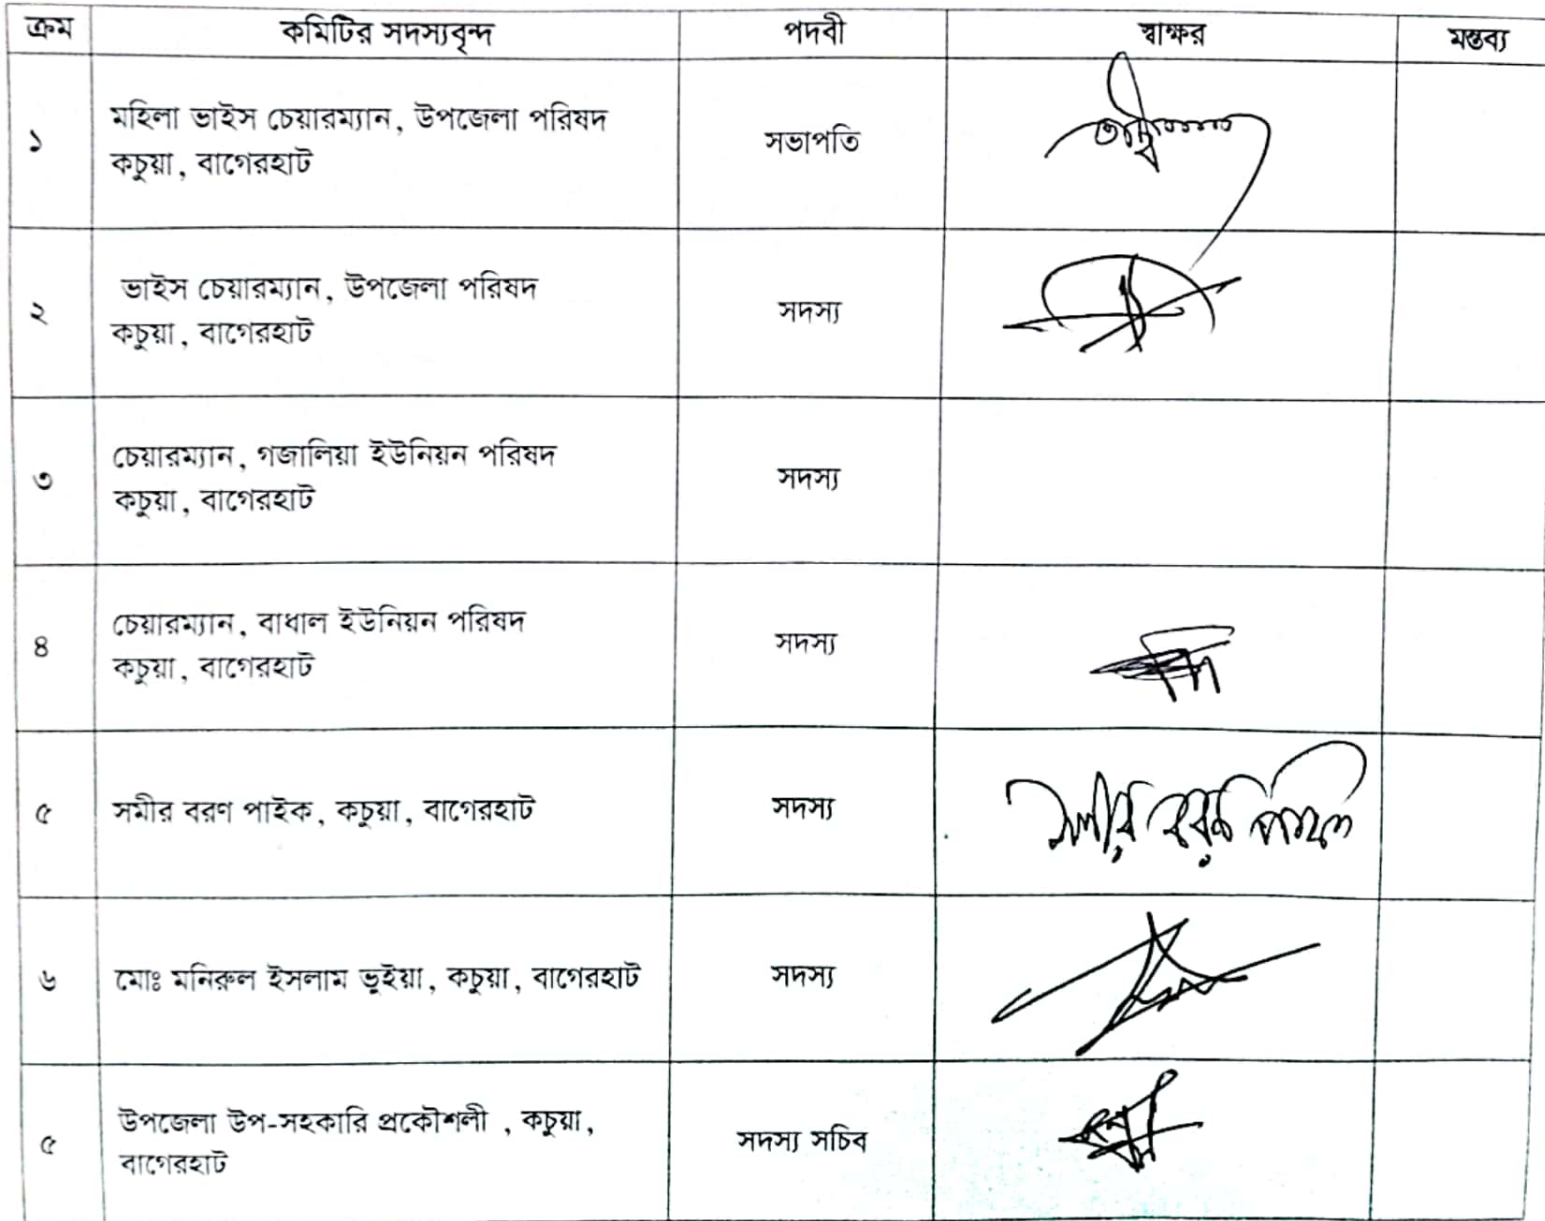 ক্রম কমিটির সদস্যবৃন্দ পদবী স্বাক্ষর মন্তব্য
১ মহিলা ভাইস চেয়ারম্যান, উপজেলা পরিষদ সভাপতি
কচুয়া, বাগেরহাট
২ ভাইস চেয়ারম্যান, উপজেলা পরিষদ সদস্য
কচুয়া, বাগেরহাট
৩ চেয়ারম্যান, গজালিয়া ইউনিয়ন পরিষদ সদস্য
কচুয়া, বাগেরহাট
৪ চেয়ারম্যান, বাধাল ইউনিয়ন পরিষদ সদস্য
কচুয়া, বাগেরহাট
৫ সমীর বরণ পাইক, কচুয়া, বাগেরহাট সদস্য সমীর বরণ পাইক
৬ মোঃ মনিরুল ইসলাম ভূইয়া, কচুয়া, বাগেরহাট সদস্য
৫ উপজেলা উপ-সহকারি প্রকৌশলী , কচুয়া, সদস্য সচিব
বাগেরহাট